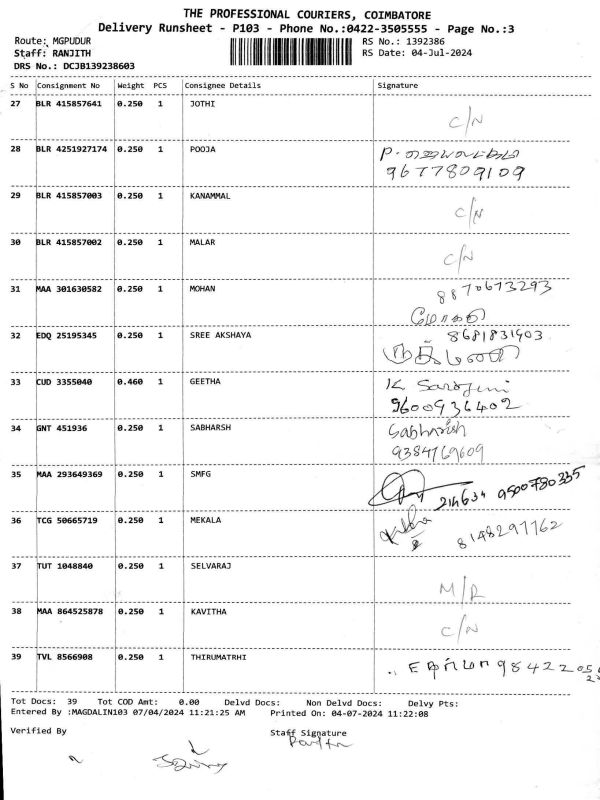 THE PROFESSIONAL COURIERS, COIMBATORE
Delivery Runsheet - P103 - Phone No.:0422-3505555 - Page No.:3
Route: MGPUDUR RS No.: 1392386
Staff: RANJITH RS Date: 04-Jul-2024
DRS No.: DCJB139238603
S No Consignment No Weight PCS Consignee Details Signature
27 BLR 415857641 0.250 1 JOTHI C/N
28 BLR 4251927174 0.250 1 POOJA P.
9677809109
29 BLR 415857003 0.250 1 KANAMMAL C/N
30 BLR 415857002 0.250 1 MALAR C/N
31 MAA 301630582 0.250 1 MOHAN 8870673293
32 EDQ 25195345 0.250 1 SREE AKSHAYA 8681831403
33 CUD 3355040 0.460 1 GEETHA K Sarojini
9600936402
34 GNT 451936 0.250 1 SABHARSH Sabharish
9384769609
35 MAA 293649369 0.250 1 SMFG 214634 9500780335
36 TCG 50665719 0.250 1 MEKALA 8148297762
37 TUT 1048840 0.250 1 SELVARAJ M/R
38 MAA 864525878 0.250 1 KAVITHA C/N
39 TVL 8566908 0.250 1 THIRUMATRHI 98422
Tot Docs: 39 Tot COD Amt: 0.00 Delvd Docs: Non Delvd Docs: Delvy Pts:
Entered By :MAGDALIN103 07/04/2024 11:21:25 AM Printed On: 04-07-2024 11:22:08
Verified By Staff Signature